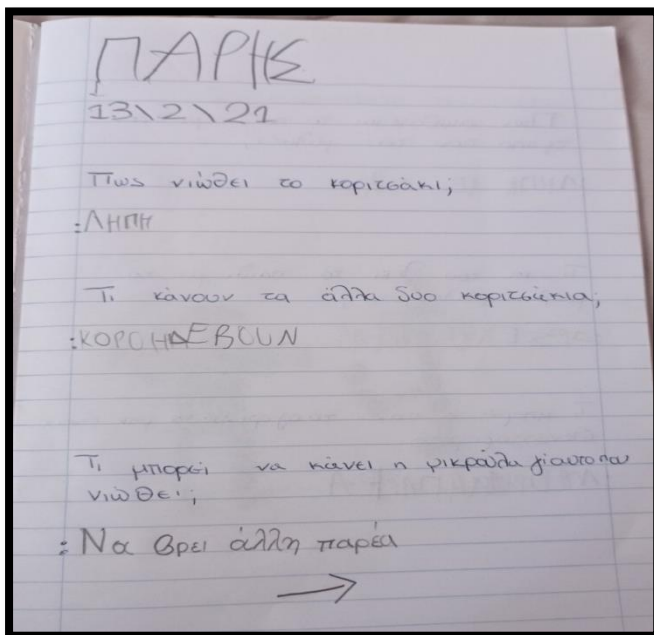 ΠΑΡΗΣ
13\2\21
Πως νιώθει το κοριτσάκι;
:ΛΗΠΗ
Τι κάνουν τα άλλα δυο κοριτσάκια;
:ΚΟΡΟΗΔΕΒΟUN
Τι μπορεί να κάνει η μικρούλα γι'αυτο που
νιώθει;
:Να βρει άλλη παρέα